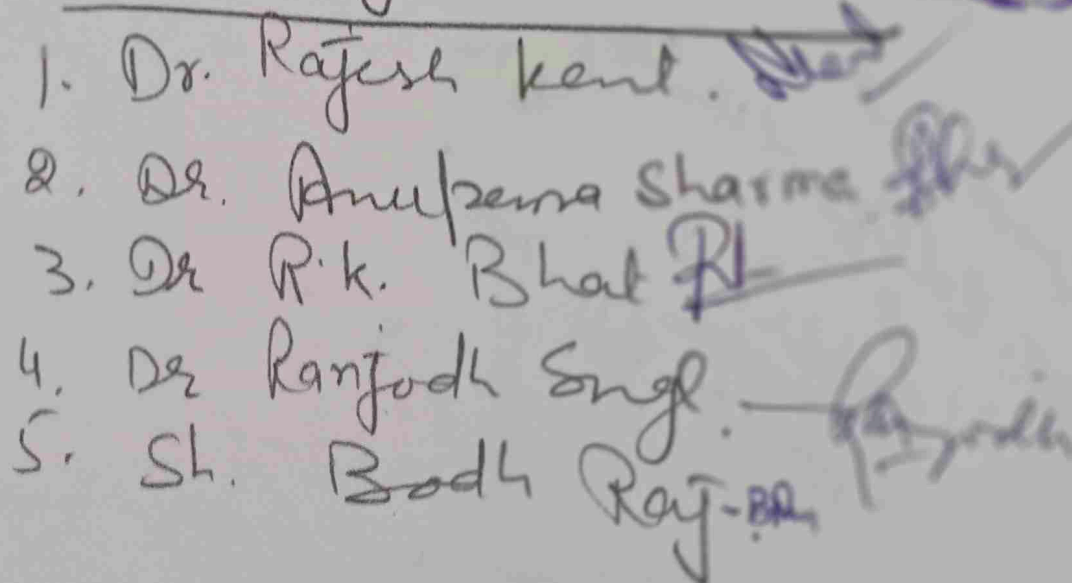 1. Dr. Rajesh kent.
2. Dr. Anupema Sharma
3. Dr R.k. Bhat
4. Dr Ranjodh Singh. Ranjodh
5. Sh. Bodh Raj - BR